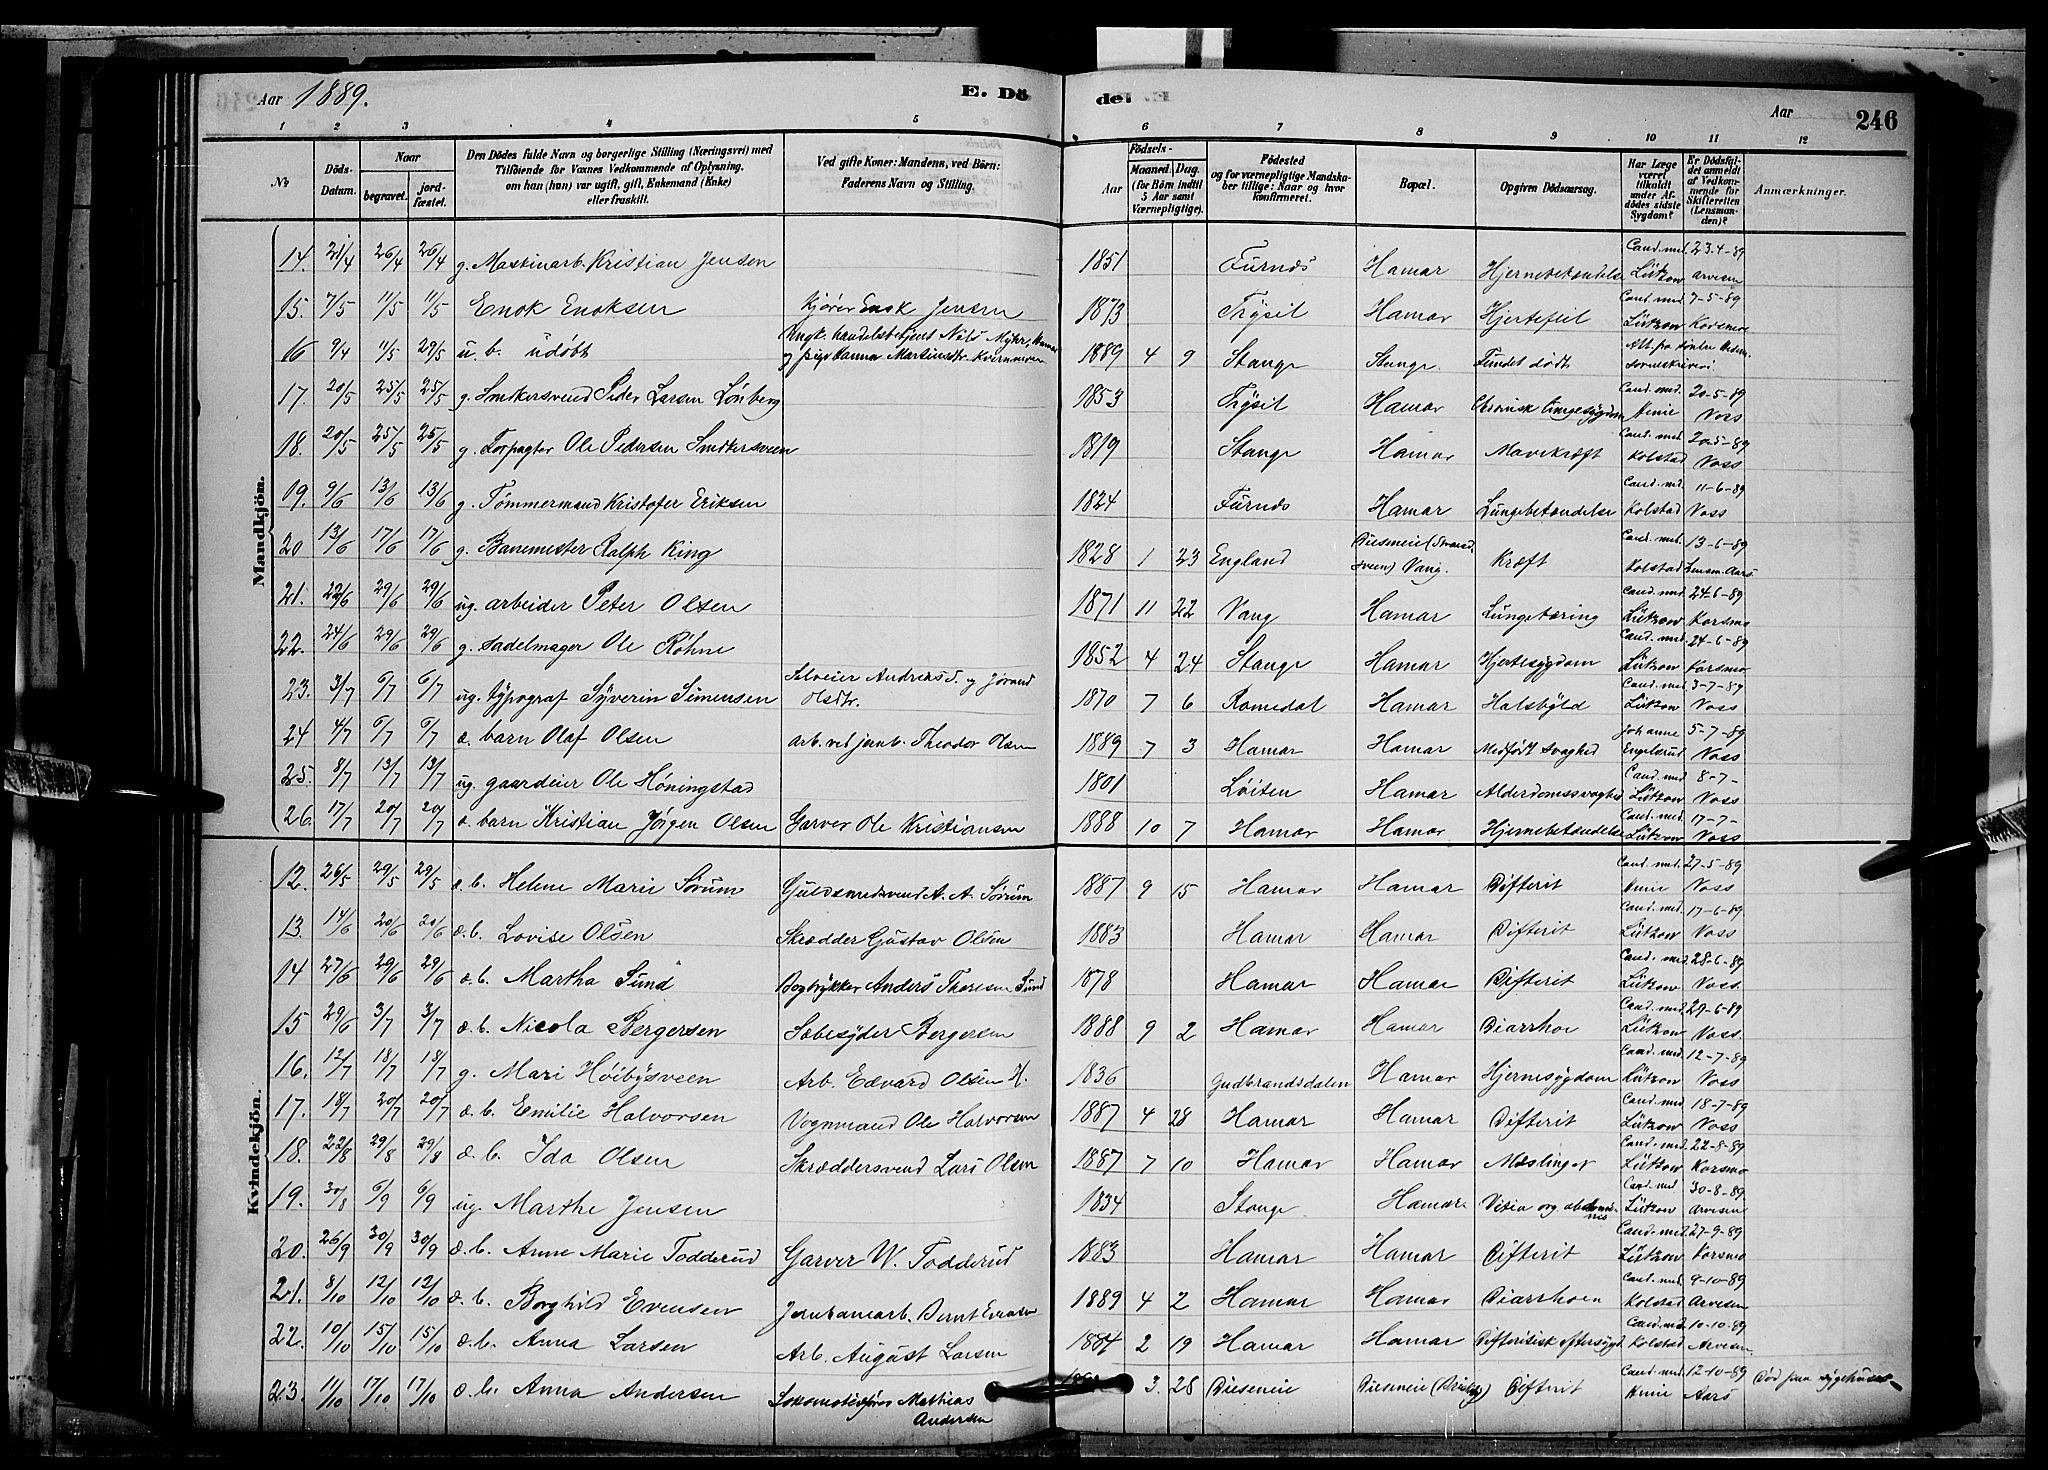 Aar 1889. E. Dö de. Aar 246
1 2 3 4 5 6 7 8 9 10 11 12
No Döds-Datum. Naar begravet. jordfæstet. Den Dödes fulde Navn og borgerlige Stilling (Næringsvei) med Tilföiende for Voxnes Vedkommende af Oplysning, om han (hun) var ugift, gift, Enkemand (Enke) eller fraskilt. Ved gifte Koner: Mandens, ved Börn: Faderens Navn og Stilling. Födsels- Aar Maaned. Dag. (for Börn indtil 5 Aar samt Værnepligtige). Födested og for værnepligtige Mandskaber tillige: Naar og hvor konfirmeret. Bopæl. Opgiven Dödsaarsag. Har Læge været tilkaldt under Afdödes sidste Sygdom? Er Dödsfaldet anmeldt af Vedkommende for Skifteretten (Lensmanden)? Anmærkninger.
Mandkjön.
14. 21/4 26/4 26/4 g. Maskinarb. Kristian Jensen 1851 Furnæs Hamar Hjernebetændelse Cand. med. Lützow 23-4-89 Arvesen
15. 7/5 11/5 11/5 Enok Enoksen Kjører Enok Jensen 1873 Trysil Hamar Hjertefeil Cand. med. Lützow 7-5-89 Korsmo
16 9/4 11/5 29/5 u. b. udøbt Ungk. handelsbetjent Nils Myhr, Hamar og pige Hanna Martinsdtr. 1889 4 9 Stange Stange. Fundet dødt Att. fra
17. 20/5 25/5 25/5 g. Snekersvend Peder Larsen Lönberg 1853 Trysil Hamar Chronisk Lungesygdom Cand. med. 20-5-89 Voss
18. 20/5 25/5 25/5 g. Forpagter Ole Pedersen Snekersveen 1819 Stange Hamar Mavekræft Cand. med. Kolstad 20-5-89 Voss
19. 9/6 13/6 13/6 g. Tömmermand Kristofer Eriksen 1824 Furnæs Hamar Lungebetændelse Cand. med. Kolstad 11-6-89 Voss
20 13/6 17/6 17/6 g. Banemester Ralph King 1828 1 23 England Diseneie Vang. Kræft Cand. med. Kolstad 13-6-89 Lensm. Aars
21. 22/6 29/6 29/6 ug. arbeider Peter Olsen 1871 11 22 Vang Hamar Lungetæring Cand. med. Lützow 24-6-89 Korsmo
22. 24/6 29/6 29/6 g. sadelmager Ole Röhne 1852 4 24 Stange Hamar Hjertesygdom Cand. med. Lützow 24-6-89 Korsmo
23. 3/7 6/7 6/7 ug. typograf Syverin Simensen Selveier Andreas S. og Jörand Olsdtr. 1870 7 6 Romedal Hamar Halsbyld Cand. med. Lützow 3-7-89 Voss
24 4/7 6/7 6/7 æ. barn Olaf Olsen Arb. ved jernb. Theodor Olsen 1889 7 3 Hamar Hamar Medfødt svaghed Johanne Engelsrud 5-7-89 Voss
25. 8/7 13/7 13/7 ug. gaardeier Ole Höningstad 1801 Löiten Hamar Alderdomssvaghed Cand. med Lützow 8-7- Voss
26. 17/7 20/7 20/7 æ. barn Kristian Jörgen Olsen Garver Ole Kristiansen 1888 10 7 Hamar Hamar Hjernebetændelse Cand. med. Lützow 17-7- Voss
Kvindekjön.
12. 26/5 29/5 29/5 æ. b. Helene Marie Sørum Guldsmedsvend A. A. Sørum 1887 9 15 Hamar Hamar Difterit Cand. med. 27-5-89 Voss
13. 14/6 20/6 20/6 æ. b. Lovise Olsen Skrædder Gustav Olsen 1883 Hamar Hamar Difterit Cand. med. Lützow 17-6-89 Voss
14 27/6 29/6 29/6 æ. b. Martha Sund Bogtrykker Anders Thoresen Sund 1878 Hamar Hamar Difterit Cand. med. Lützow 28-6-89 Voss
15 29/6 3/7 3/7 æ. b. Nicola Bergersen Sæbesyder Bergersen 1888 9 2 Hamar Hamar Diarrhoe Cand. med. Lützow 29-6-89 Voss.
16. 12/7 18/7 18/7 g. Mari Höibysveen Arb. Edvard Olsen H. 1836 Gudbrandsdalen Hamar Hjernesygdom Cand. med. Lützow 12-7-89 Voss
17. 18/7 20/7 20/7 æ. b. Emilie Halvorsen Vognmand Ole Halvorsen 1887 4 28 Hamar Hamar Difterit Cand. med. Lützow 18-7-89 Voss
18. 22/8 29/8 29/8 æ. b. Ida Olsen Skræddersvend Lars Olsen 1887 7 10 Hamar Hamar Mæslinger Cand. med. Lützow 22-8-89 Korsmo
19. 30/8 6/9 6/9 ug. Marthe Jensen 1834 Stange Hamar Vitia org. abdominis Cand. med Lützow 30-8-89 Arvesen
20. 26/9 30/9 30/9 æ. b. Anne Marie Todderud Garver W. Todderud 1883 Hamar Hamar Difterit Cand. med. Lützow 27-9-89 Korsmo
21. 8/10 12/10 12/10 æ. b. Borghild Evensen Jernbanearb. Bernt Evensen 1889 4 2 Hamar Hamar Diarrhoen Cand. med. Kolstad 9-10-89 Arvesen
22. 10/10 15/10 15/10 æ. b. Anna Larsen Arb. August Larsen 1884 2 19 Hamar Hamar Difteritisk eftersygd. Cand. med. Kolstad 10-10-89 Arvesen
23. 11/10 17/10 17/10 æ. b. Anna Andersen Lokomotivfører Mathias Andersen 3. 28 Diseneie Diseneie Difterit Cand. med. 12-10-89 Aars Død paa sygehuset